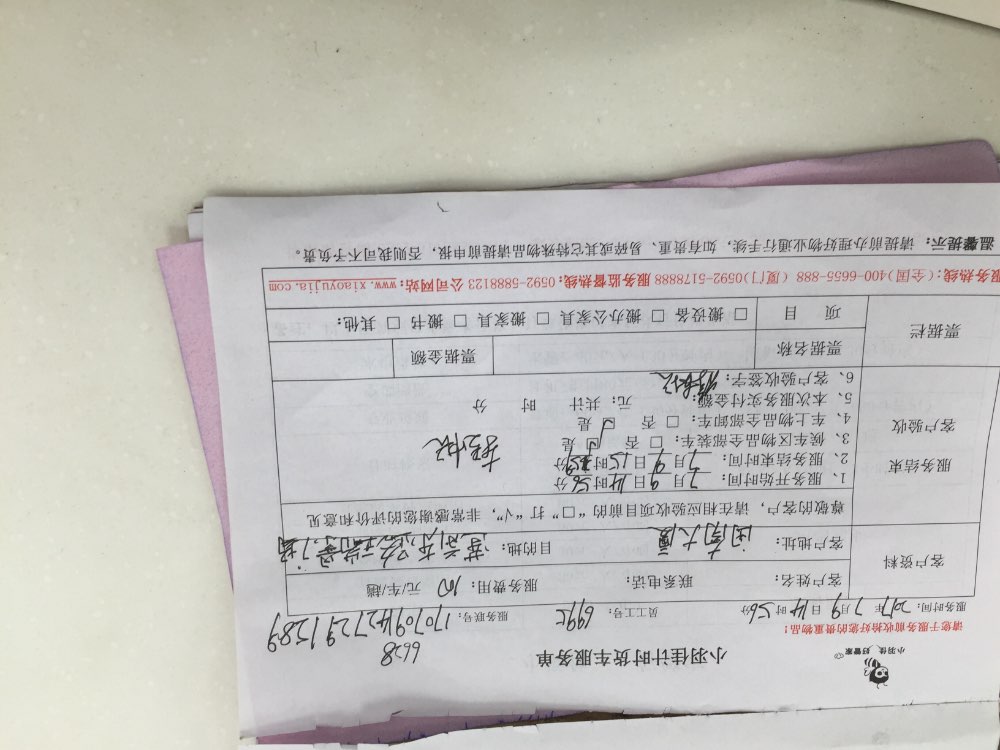 小羽佳 好管家
小羽佳计时货车服务单
6638
请您于服务前收拾好您的贵重物品!
服务时间: 2017年 7月 9日 14时 56分 员工工号: 服务联号:
客户资料
客户姓名: 联系电话: 服务费用: 100 元/车/趟
客户地址: 闽南大厦 目的地:
尊敬的客户, 请在相应验收项目前的“□”打“√”, 非常感谢您的评价和意见
服务结束
客户验收
1、服务开始时间: 7月 9日 14时 56分
2、服务结束时间: 7月 9日 15时 分
3、候车区物品全部装车: □ 否 √ 是
4、车上物品全部卸车: □ 否 √ 是
5、本次服务实付金额: 元; 共计 时 分
6、客户验收签字:
票据栏
票据名称 票据金额
项 目 □ 搬设备 □ 搬办公家具 □ 搬家具 □ 搬书 □ 其他:
服务热线:(全国)400-6655-888 (厦门)0592-5178888 服务监督热线: 0592-5888123 公司网站: www.xiaoyujia.com
温馨提示: 请提前办理好物业通行手续, 如有贵重、易碎或其它特殊物品请提前申报, 否则我司不予负责。